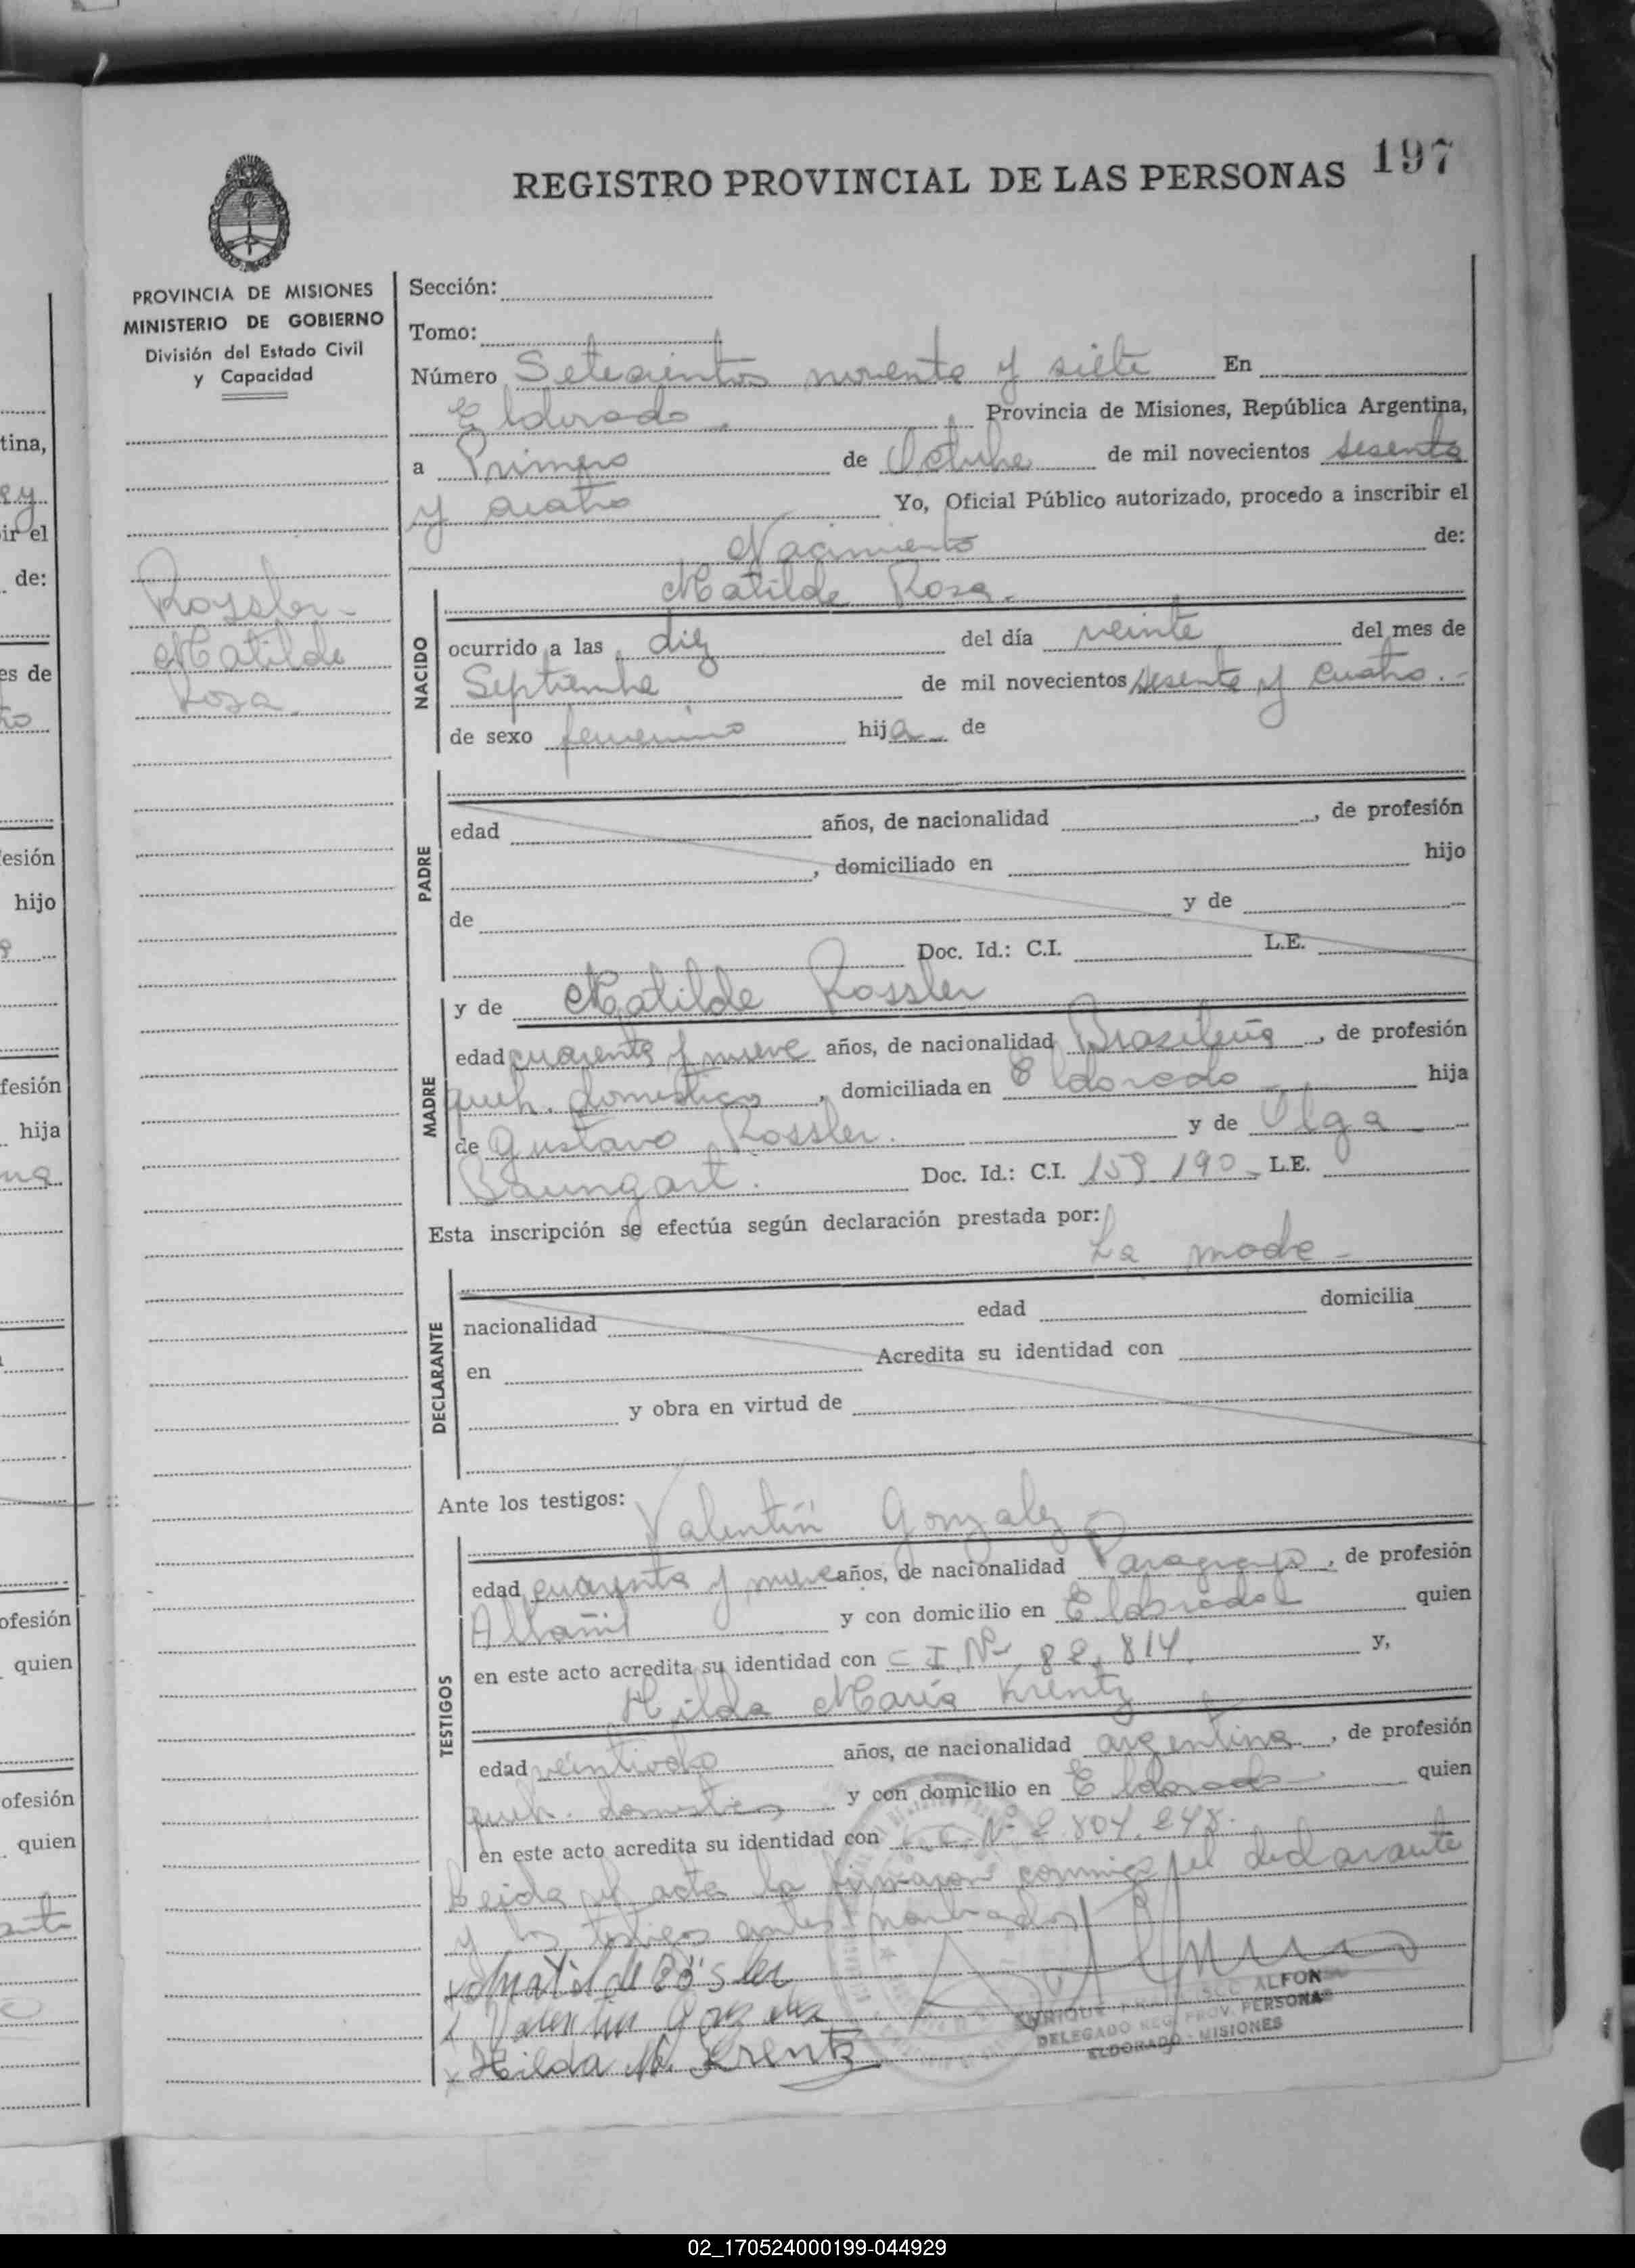 REGISTRO PROVINCIAL DE LAS PERSONAS 197
PROVINCIA DE MISIONES
MINISTERIO DE GOBIERNO
División del Estado Civil
y Capacidad
Rossler-
Matilde
Rosa.
Sección:
Tomo:
Número Setecientos noventa y siete En
Eldorado. Provincia de Misiones, República Argentina,
a Primero de Octubre de mil novecientos sesenta
y cuatro Yo, Oficial Público autorizado, procedo a inscribir el
Nacimiento de:
Matilde Rosa.
NACIDO
ocurrido a las diez del día veinte del mes de
Septiembre de mil novecientos sesenta y cuatro.-
de sexo femenino hija de
PADRE
edad años, de nacionalidad , de profesión
, domiciliado en hijo
de y de
Doc. Id.: C.I. L.E.
y de Matilde Rossler
MADRE
edad cuarenta y nueve años, de nacionalidad Brasileña , de profesión
queh. domesticos , domiciliada en Eldorado hija
de Gustavo Rossler. y de Olga
Baumgart. Doc. Id.: C.I. 159.190 L.E.
Esta inscripción se efectúa según declaración prestada por:
La madre-
DECLARANTE
nacionalidad edad domicilia
en Acredita su identidad con
y obra en virtud de
Ante los testigos: Valentín Gonzalez
TESTIGOS
edad cuarenta y nueve años, de nacionalidad Paraguayo , de profesión
Albañil y con domicilio en Eldorado quien
en este acto acredita su identidad con C I. Nº 82.814. y,
Hilda María Krentz
edad veintiocho años, de nacionalidad argentina , de profesión
queh. domesticos y con domicilio en Eldorado quien
en este acto acredita su identidad con Nº 2.804.248.
Leida el acta la firmaron conmigo el declarante
y los testigos antes nombrados
Matilde Rösler
Valentin Gonzalez
Hilda M. Krentz
ENRIQUE ALFONSO
DELEGADO REG. PROV. PERSONAS
ELDORADO - MISIONES
tina,
ir el
de:
es de
esión
hijo
fesión
hija
ofesión
quien
ofesión
quien
02_170524000199-044929